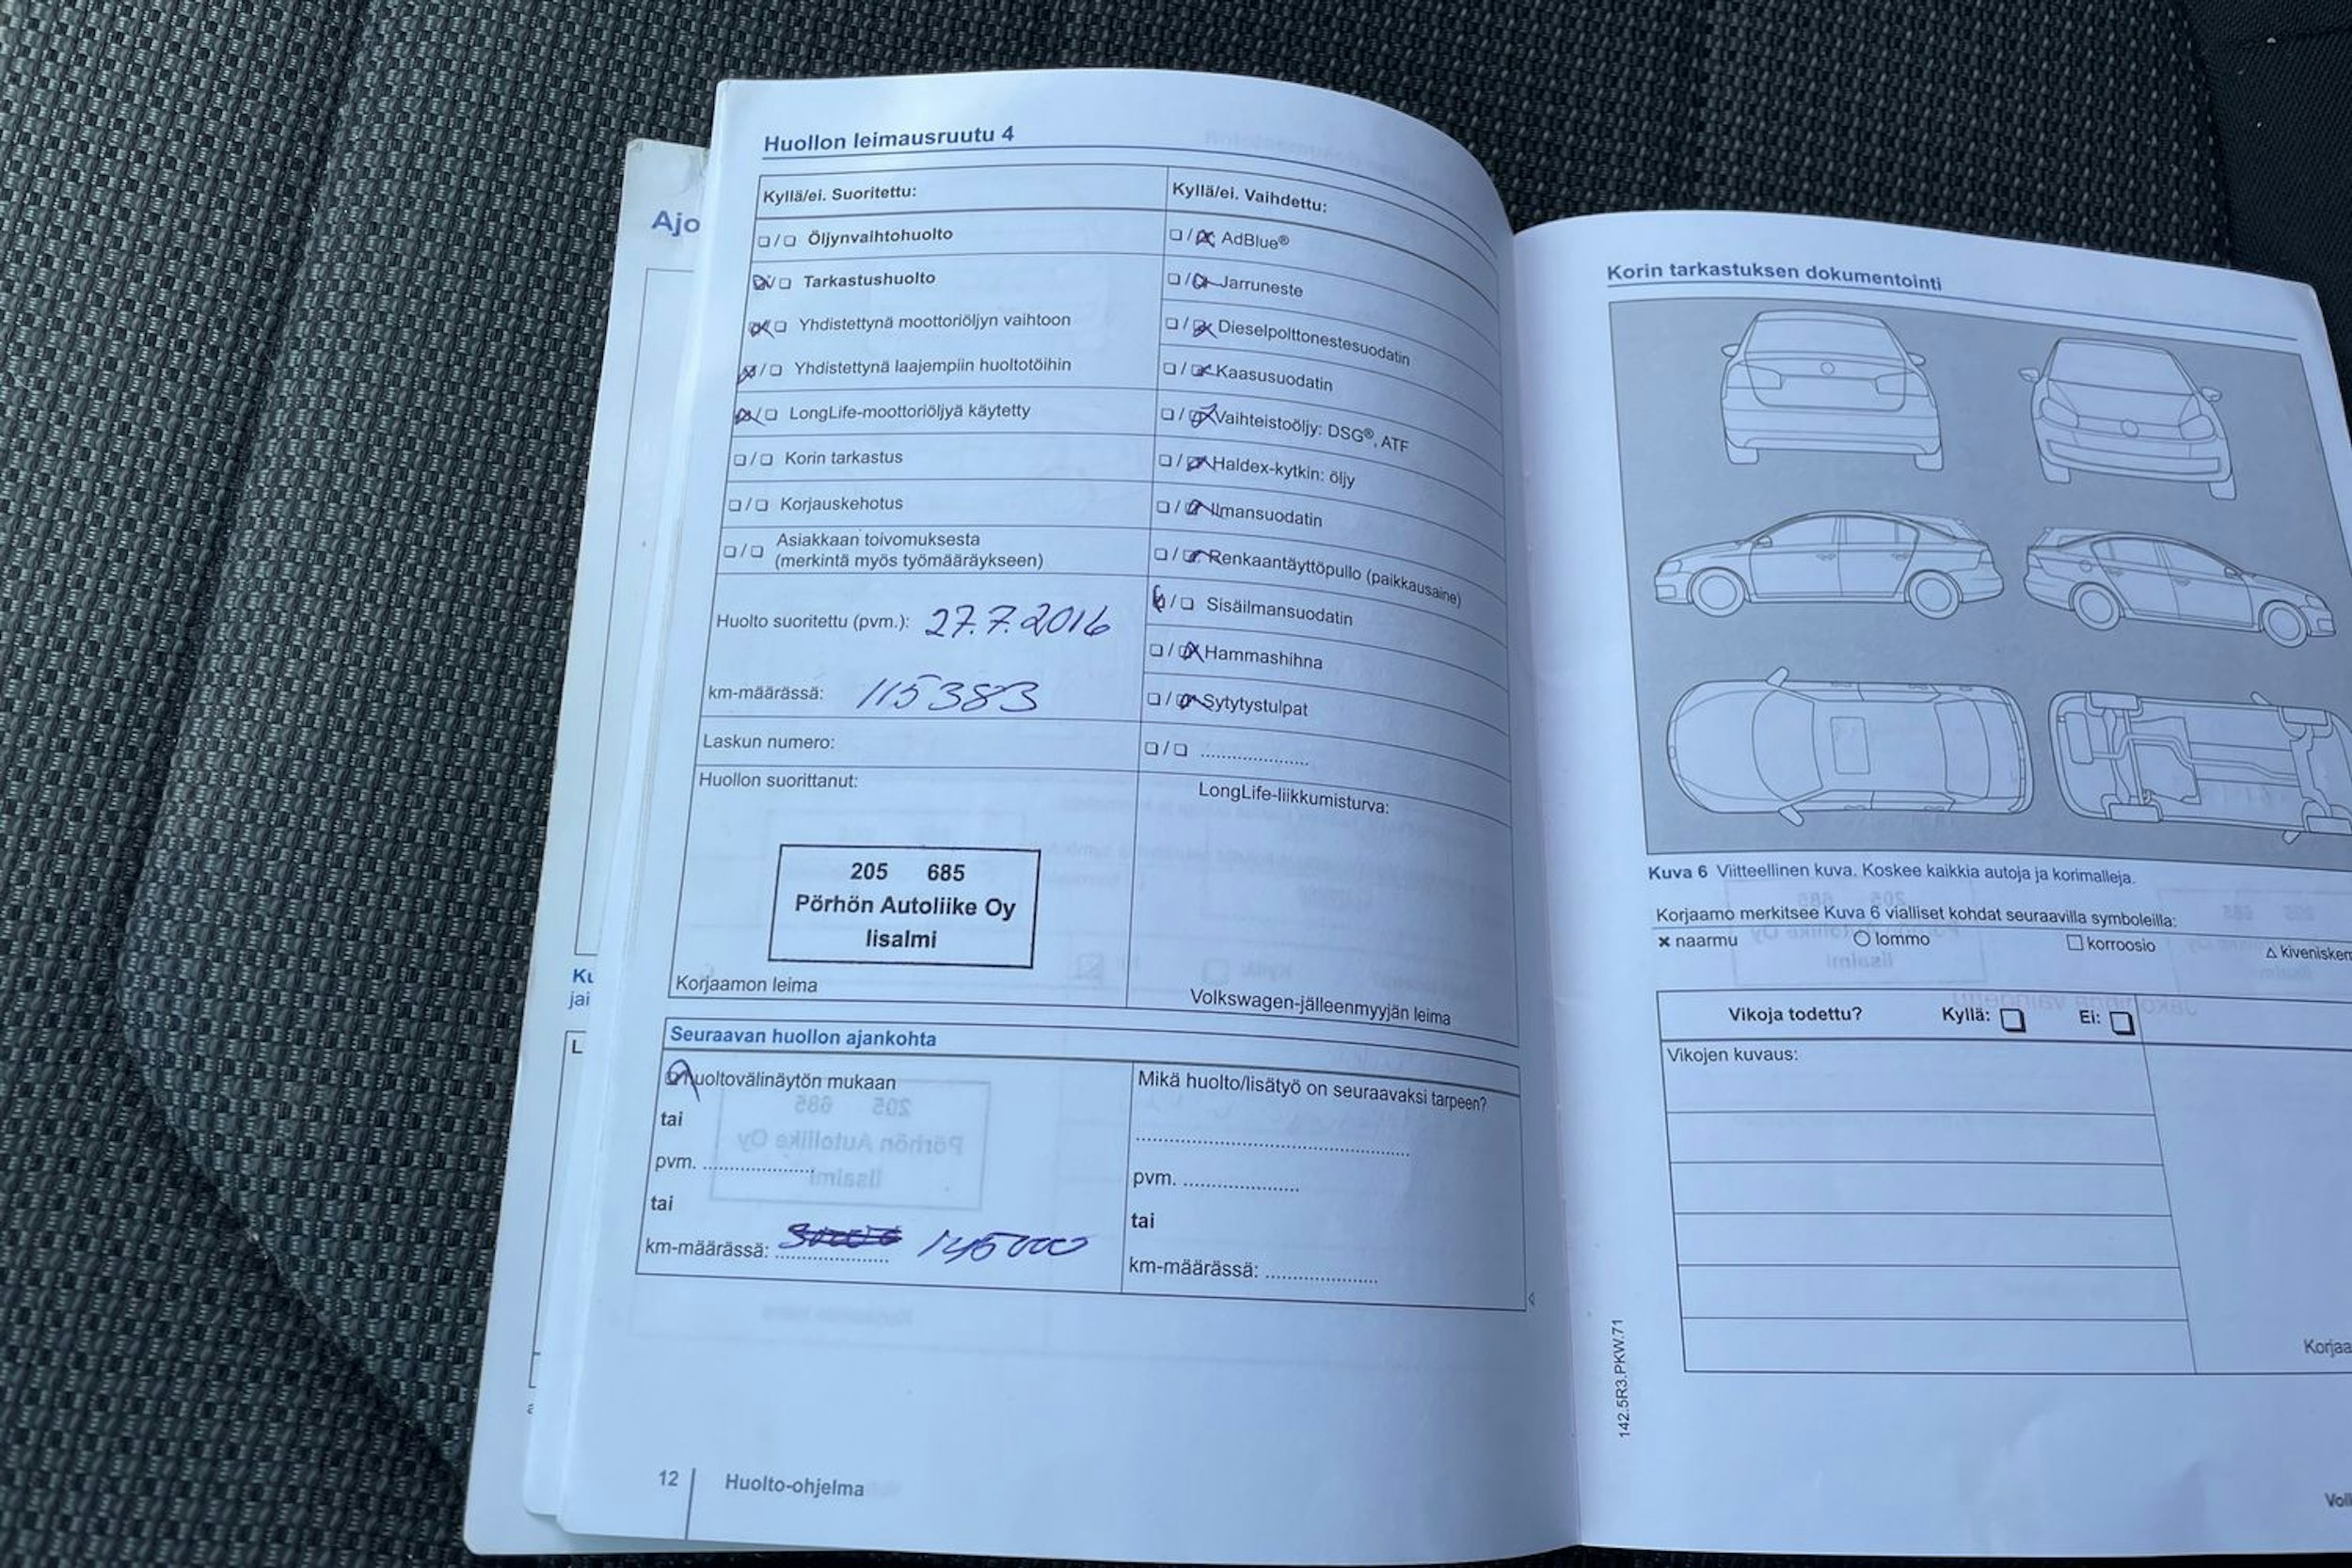 Ajo
Huollon leimausruutu 4
Kyllä/ei. Suoritettu:
❏/❏ Öljynvaihtohuolto
❏/❏ Tarkastushuolto
❏/❏ Yhdistettynä moottoriöljyn vaihtoon
❏/❏ Yhdistettynä laajempiin huoltotöihin
❏/❏ LongLife-moottoriöljyä käytetty
❏/❏ Korin tarkastus
❏/❏ Korjauskehotus
❏/❏ Asiakkaan toivomuksesta
(merkintä myös työmääräykseen)
Huolto suoritettu (pvm.): 27.7.2016
km-määrässä: 115383
Laskun numero:
Huollon suorittanut:
205 685
Pörhön Autoliike Oy
Iisalmi
Korjaamon leima
Kyllä/ei. Vaihdettu:
❏/❏ AdBlue®
❏/❏ Jarruneste
❏/❏ Dieselpolttonestesuodatin
❏/❏ Kaasusuodatin
❏/❏ Vaihteistoöljy: DSG®, ATF
❏/❏ Haldex-kytkin: öljy
❏/❏ Ilmansuodatin
❏/❏ Renkaantäyttöpullo (paikkausaine)
❏/❏ Sisäilmansuodatin
❏/❏ Hammashihna
❏/❏ Sytytystulpat
❏/❏ .....................
LongLife-liikkumisturva:
Volkswagen-jälleenmyyjän leima
Seuraavan huollon ajankohta
uoltovälinäytön mukaan
tai
pvm. .....................
tai
km-määrässä: ..................... 145000
Mikä huolto/lisätyö on seuraavaksi tarpeen?
..................................................
pvm. .....................
tai
km-määrässä: .....................
12 Huolto-ohjelma
Korin tarkastuksen dokumentointi
Kuva 6 Viitteellinen kuva. Koskee kaikkia autoja ja korimalleja.
Korjaamo merkitsee Kuva 6 vialliset kohdat seuraavilla symboleilla:
× naarmu ○ lommo □ korroosio △ kivenisken
Vikoja todettu? Kyllä: ❏ Ei: ❏
Vikojen kuvaus:
Korjaa
142.5R3.PKW.71
Voll
Ku
jai
L